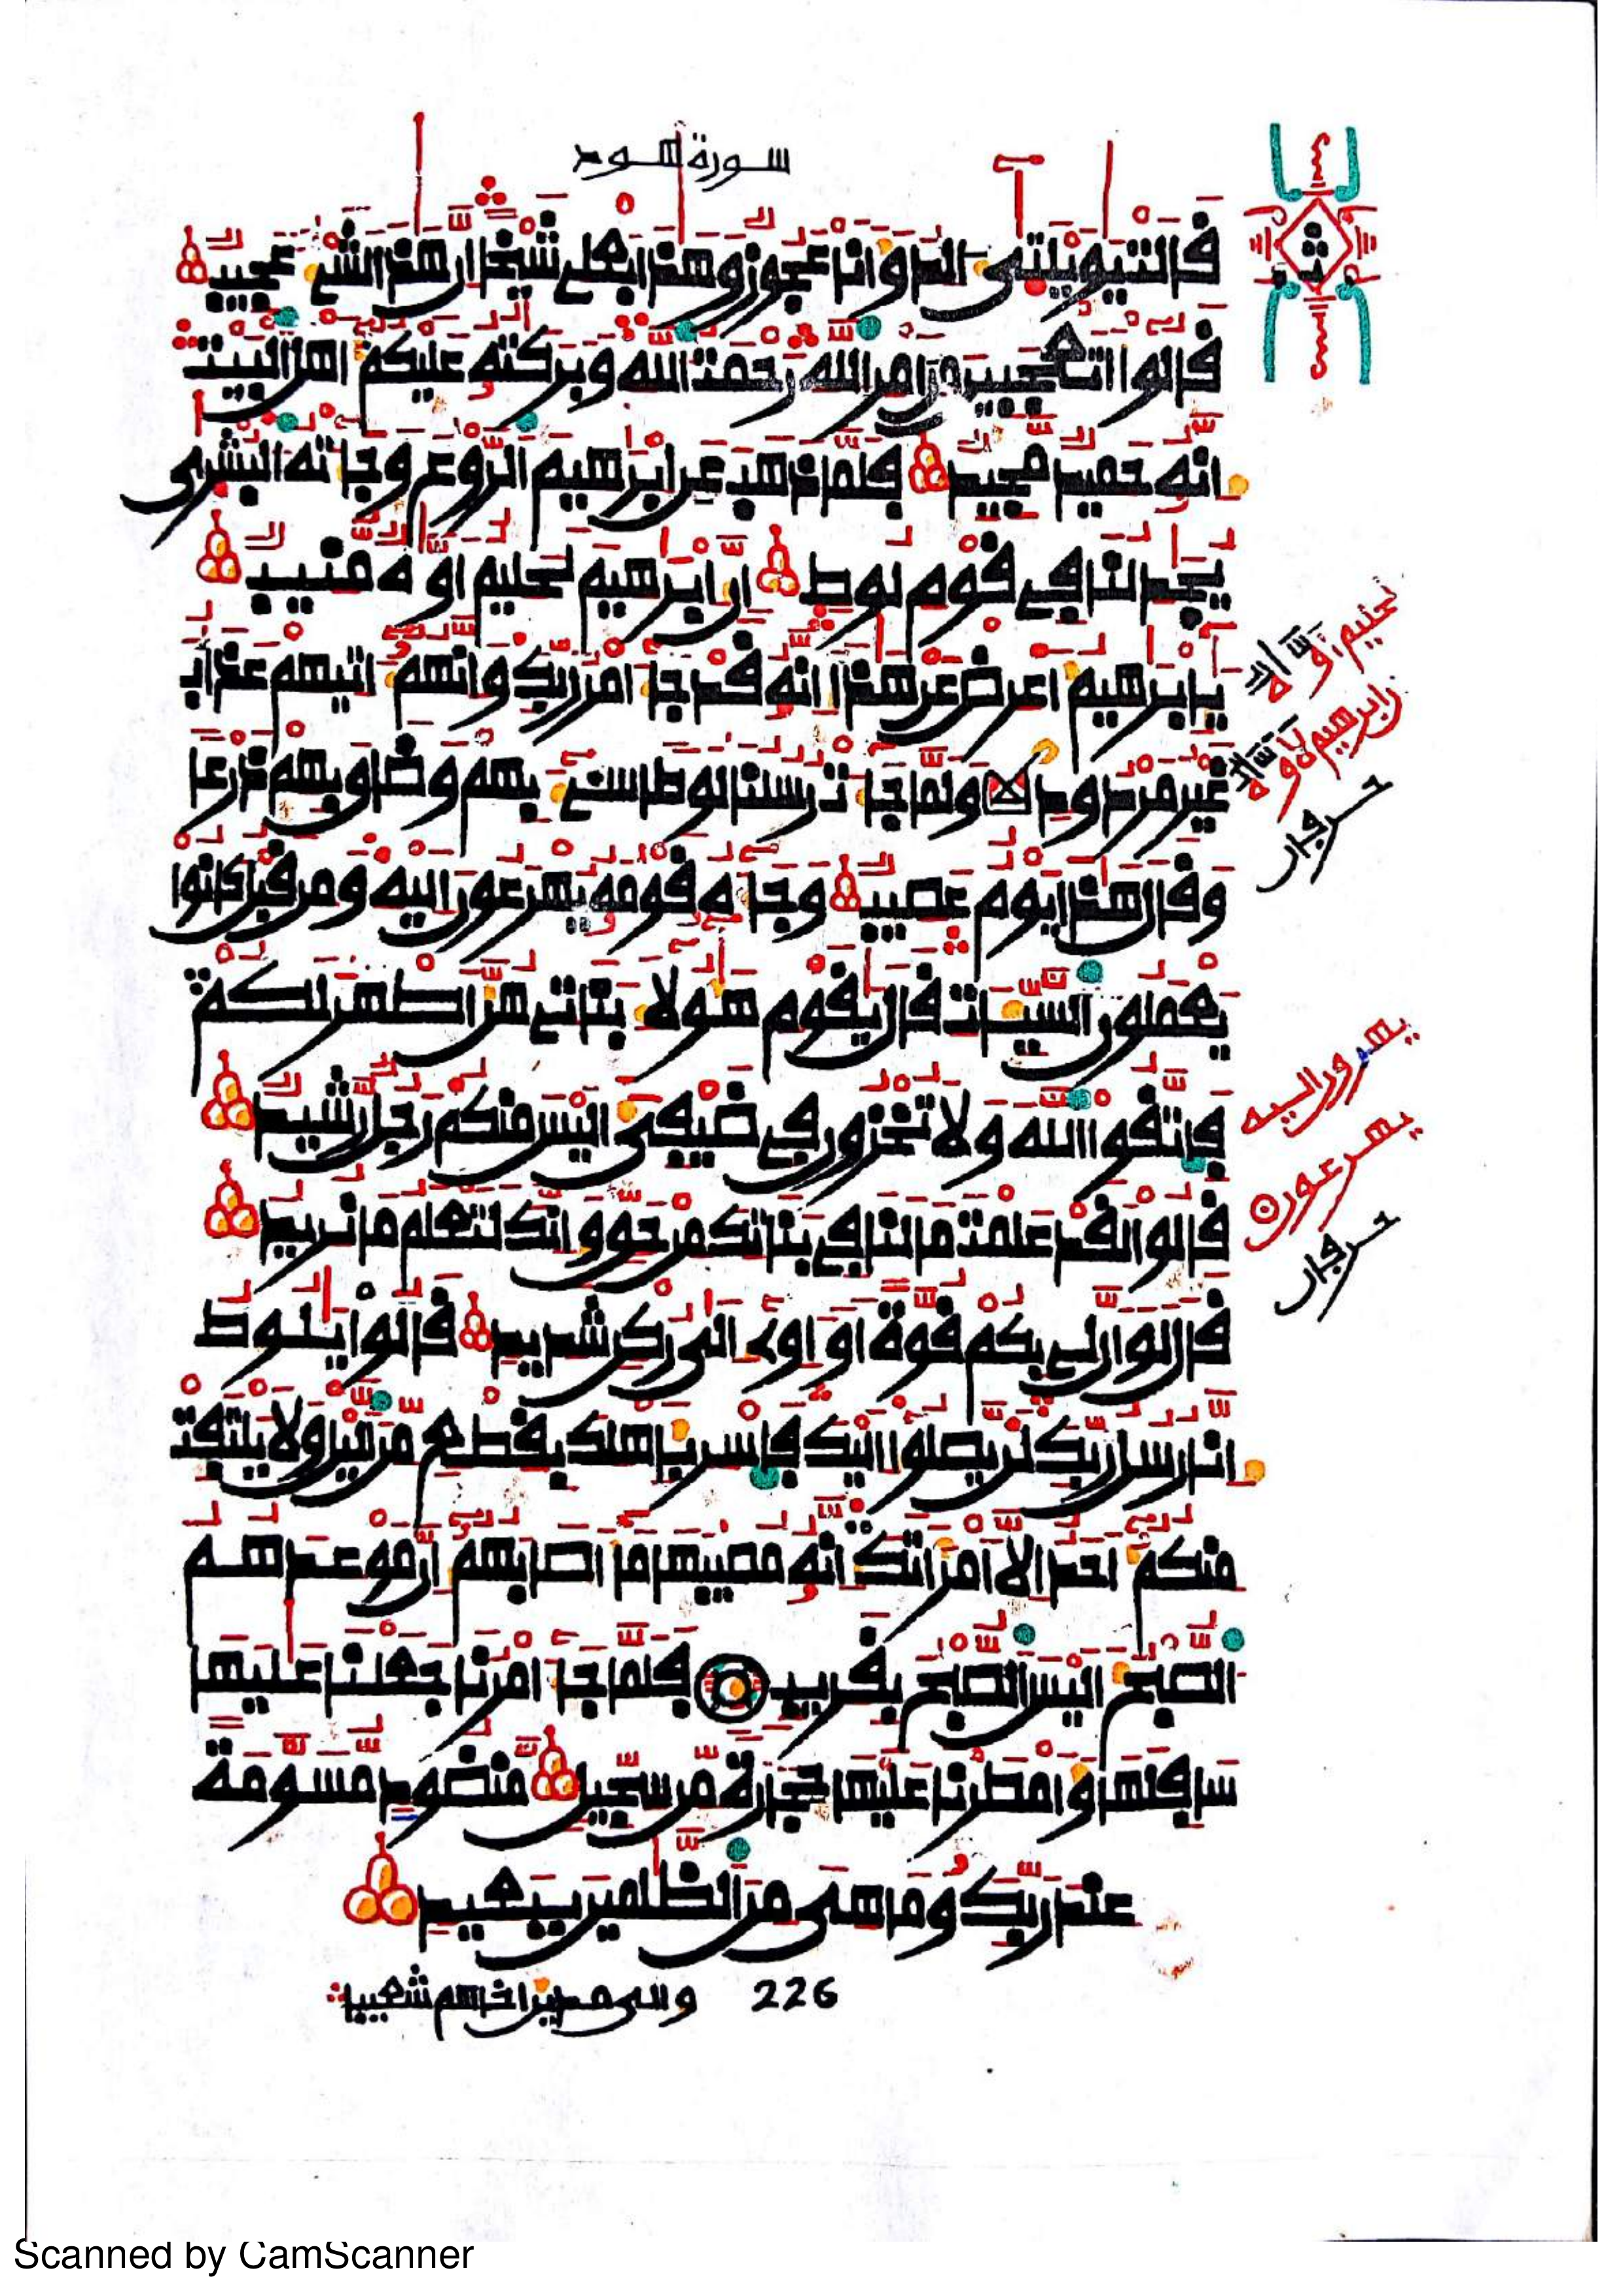 سورة هود
قالت يويلتى ءالد وانا عجوز وهذا بعلي شيخا ان هذا لشيء عجيب
قالوا اتعجبين من امر الله رحمت الله وبركته عليكم اهل البيت
انه حميد مجيد فلما ذهب عن ابرهيم الروع وجاءته البشرى
يجدلنا في قوم لوط ان ابرهيم لحليم اوه منيب
يابرهيم اعرض عن هذا انه قد جاء امر ربك وانهم ءاتيهم عذاب
غير مردود ولما جاءت رسلنا لوطا سيء بهم وضاق بهم ذرعا
وقال هذا يوم عصيب وجاءه قومه يهرعون اليه ومن قبل كانوا
يعملون السيءات قال يقوم هولاء بناتي هن اطهر لكم
فاتقوا الله ولا تخزون في ضيفي اليس منكم رجل رشيد
قالوا لقد علمت ما لنا في بناتك من حق وانك لتعلم ما نريد
قال لو ان لي بكم قوة او ءاوي الى ركن شديد قالوا يلوط
انا رسل ربك لن يصلوا اليك فاسر باهلك بقطع من اليل ولا يلتفت
منكم احد الا امراتك انه مصيبها ما اصابهم ان موعدهم
الصبح اليس الصبح بقريب فلما جاء امرنا جعلنا عليها
سافلها وامطرنا عليها حجارة من سجيل منضود مسومة
عند ربك وما هي من الظلمين ببعيد
226 والى مدين اخاهم شعيبا
Scanned by CamScanner